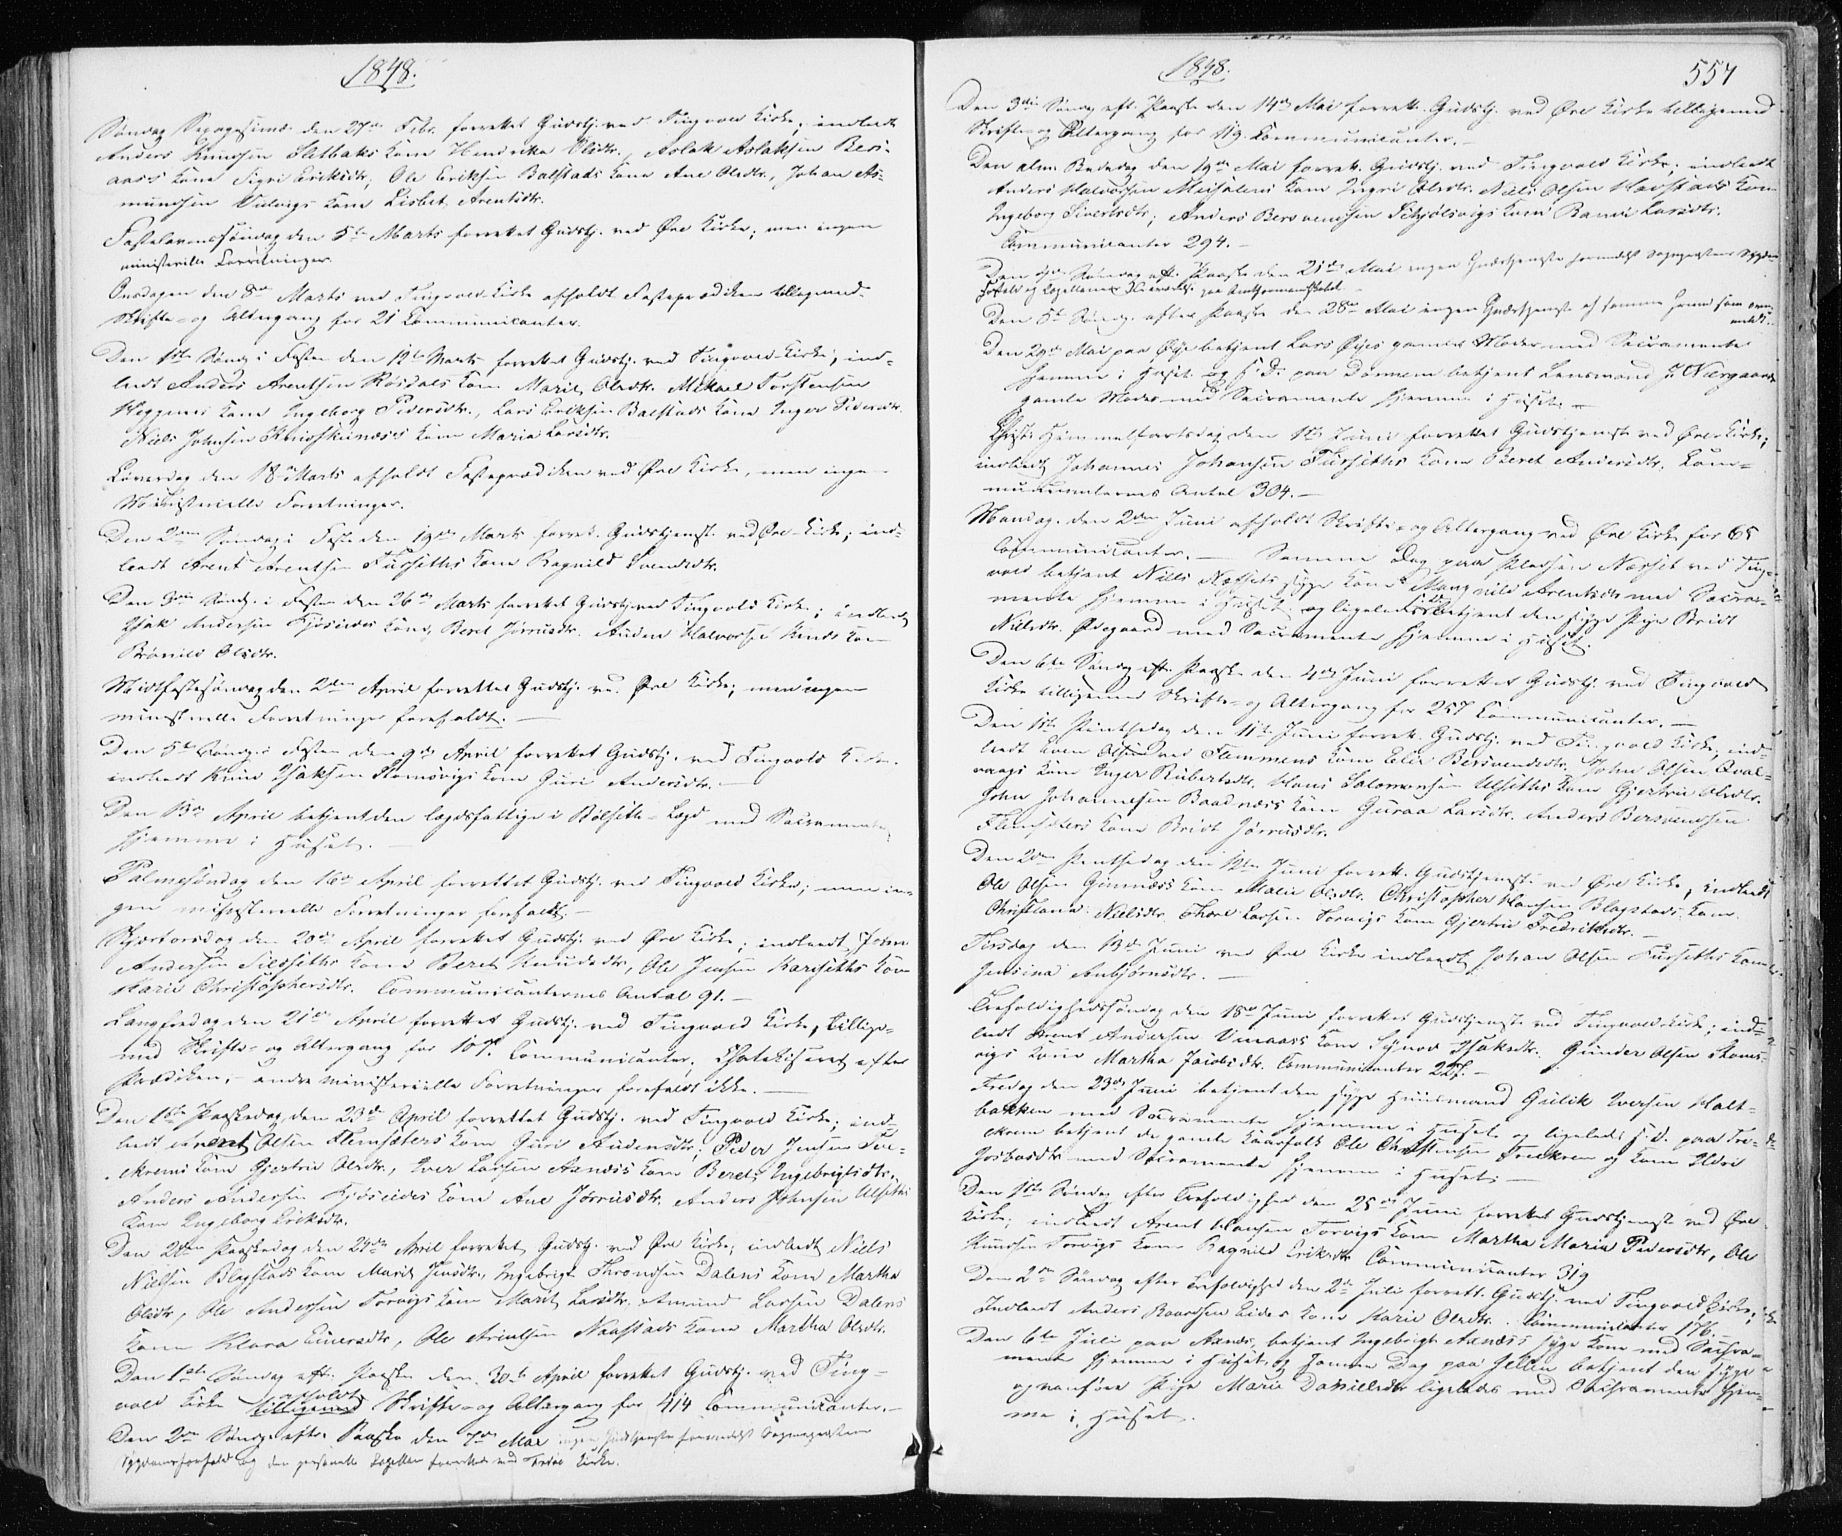 1848.
Søndag Sexagesimæ den 27de Febr. forrettet Gudstj. ved Tingvold Kirke; indledt
Anders Knudsen Sletbaks Kone Hendrikka Olsdtr., Aslak Aslaksen Beri-
aass Kone Sigri Eriksdtr., Ole Eriksen Balstads Kone Ane Olsdtr., Johan As-
mundsen Kone Lisbet Arentsdtr.
Fastelavenssøndag den 5te Marts forrettet Gudstj. ved Øre Kirke; men ingen
ministerielle Forretninger.
Onsdagen den 8de Marts ved Tingvold Kirke afholdt Fasteprædiken tilligemed
Skrifte- og Altergang for 21 Communicanter.
Den 1ste Sønd. i Fasten den 12te Marts forrettet Gudstj. ved Tingvold Kirke; ind-
ledt Anders Arentsen Rosdals Kone Marit Olsdtr. Mikael Torstensen
Kone Ingeborg Pedersdtr., Lars Eriksen Balstads Kone Inger Pedersdtr.
Niels Johnsen Kone Maria Larsdtr.
Løverdag den 18de Marts afholdt Fasteprædiken ved Øre Kirke, men ingen
Ministerielle Forretninger.
Den 2den Søndag i Faste den 19de Marts forret. Gudstjenest. ved Øre Kirke; ind-
ledt Arent Arentsen Furseths Kone Ragnild Svendsdtr.
Den 3die Sønd. i Fasten den 26de Marts forrettet Gudstj. ved Tingvold Kirke; indledt
Isak Andersen Kjøseides Kone, Beret Jørrusdtr. Anders Halvorsen Kone
Olsdtr.
Midtfastesøndag den 2den April forrettet Gudstj. ved Øre Kirke; men ingen
ministerielle Forretninger forefaldt. —
Den 5te Sønd. i Fasten den 9de April forrettet Gudstj. ved Tingvold Kirke.
indledt Knud Isaksen Kone Guri Andersdtr. —
Den 13de April betjent den lægdsfattige i Boksetli-Lægd med Sacramentet
hjemme i Huset. —
Palmesøndag den 16de April forrettet Gudstj. ved Tingvold Kirke; men in-
gen ministerielle Forretninger forefaldt. —
Skjærtorsdag den 20de April forrettet Gudstj. ved Øre Kirke; indledt John
Andersen Kone Beret Knudsdtr., Ole Jensen Karlsseths Kone
Marie Christophersdtr. Communicanternes Antal 91. —
Langfredag den 21de April forrettet Gudstj. ved Tingvold Kirke, tillige-
med Skrifte- og Altergang for 107 Communicanter, Chatekiseret efter
Prædiken, — andre ministerielle Forretninger forefaldt ikke. —
Den 1ste Paaskedag den 23de April forrettet Gudstj. ved Tingvold Kirke; ind-
ledt Olsen Flemsæters Kone Guri Andersdtr., Peder Jensen Tre-
ekrems Kone Gjertrue Olsdtr., Iver Larsen Aandss Kone Beret Ingebrigtsdtr.,
Anders Andersen Kjøseides Kone Ane Jørrusdtr. Anders Johnsen Ulseths
Kone Ingeborg Eriksdtr.
Den 2den Paaskedag den 24de April forrettet Gudstj. ved Øre Kirke; indledt Niels
Nielsen Blegstads Kone Marit Jensdtr., Ingebrigt Throndsen Dalens Kone Martha
Olsdtr., Ole Andersen Torvigs Kone Marit Larsdtr. Amund Larsen Dalens
Kone Klara Einersdtr., Ole Arentsen Naastads Kone Martha Olsdtr.
Den 1ste Søndag eft. Paaske den 30te April forrettet Gudstj. ved Ting-
vold Kirke tilligemed afholdt Skrifte- og Altergang for 414 Communicanter. —
Den 2den Søndag efter Paaske den 7de Mai ingen Gudstjeneste formedelst Sognepræstens
Sygdomsforfald og den personelle Capellan forrettede ved Kirke.
1848.
557
Den 3die Søndag eft. Paaske den 14de Mai forrett. Gudstj. ved Øre Kirke tilligemed
Skrifte- og Altergang for 119 Communicanter. —
Den alm. Bededag den 19de Mai forrett. Gudstj. ved Tingvold Kirke; indledt
Anders Halvorsen Meisalens Kone Ingri Olsdtr. Niels Olsen Havstads Kone
Ingeborg Sivertsdtr.; Anders Bersvendsen Kone Rannei Larsdtr.
Communicanter 294. —
Den 4de Søndag eft. Paaske den 21de Mai ingen Gudstjeneste formedelst Sognepræstens Sygdoms-
forfald og Capellanens
Den 5te Søndag efter Paaske den 28de Mai ingen Gudstjeneste af samme Grund som oven-
meldt.
Den 29de Mai paa Øye betjent Lars Øyes gamle Moder med Sacramentet
hjemme i Huset og s. D. paa betjent Lensmand J. Nærgaards
gamle Moder med Sacramentet hjemme i Huset. —
Christi Himmelfartsdag den 1ste Juni forrettet Gudstjenest. ved Øre Kirke;
indledt Johannes Johansen Furseths Kone Beret Andersdtr. Com-
municanternes Antal 304. —
Mandag den 2den Juni afholdt Skrifte- og Altergang ved Øre Kirke for 65
Communicanter. — Samme Dag paa Pladsen Næsset ved Ting-
vold betjent Niels Næssets syge Kone Magnild Arentsdtr. med Sacra-
mentet hjemme i Huset. og ligeledes betjent den syge Pige Bridt
Nielsdtr. Øvegaard med Sacramentet hjemme i Huset.
Den 6te Søndag eft. Paaske den 4de Juni forrettet Gudstj. ved Tingvold
Kirke tilligemed Skrifte- og Altergang for 257 Communicanter. —
Den 1ste Pintsedag den 11te Juni forrett. Gudstj. ved Tingvold Kirke, ind-
ledt Olsen Flemmens Kone Elie Bersvendsdtr. John Olsen Qval-
vaags Kone Inger Rubertsdtr. Hans Salomonsen Ulseths Kone Gjertrue Olsdtr.
John Johannesen Baadnæss Kone Guraa Larsdtr. Anders Bersvendsen
Flemsæters Kone Bridt Jørrusdtr.
Den 2den Pintsedag den 12te Juni forrett. Gudstjenest. ved Øre Kirke, indledt
Ole Olsen Gimnæss Kone Malene Olsdtr. Christopher Hansen Blagstads Kone
Christiana Nielsdtr. Thore Larsen Torvigs Kone Gjertrue Fredriksdtr. —
Tirsdag den 13de Juni ved Øre Kirke indledt Johan Olsen Furseths Kone
Gurina Anbjørnsdtr. —
Trefoldighedssøndag den 18de Juni forrettet Gudstjeneste ved Tingvold Kirke; ind-
ledt Arent Andersen Vinaass Kone Synnøv Isaksdtr. Gunder Olsen
vigs Kone Martha Jacobsdtr. Communicanter 227. —
Fredag den 23de Juni betjent den syge Huusmand Gulik Iversen Halt-
bakken med Sacramentet hjemme i Huset og ligeledes s. D. paa Tre-
ekrem betjent de gamle Kaarfolk Ole Christensen Treekrem og Kone Ildri
med Sacramentet hjemme i Huset. —
Den 1ste Søndag efter Trefoldighed den 25de Juni forrettet Gudstjeneste ved Øre
Kirke; indledt Arent Hansen Torvigs Kone Martha Maria Pedersdtr., Ole
Knudsen Torvigs Kone Ragnild Eriksdtr. Communicanter 319
Den 2den Søndag efter Trefoldighed den 2de Juli forrett. Gudstj. ved Tingvold Kirke;
Indledt Anders Baardsen Eides Kone Marie Olsdtr. Communicanter 176. —
Den 6te Juli paa Aandss, betjent Ingebrigt Aandss syge Kone med Sacra-
mentet hjemme i Huset og samme Dag paa betjent den syge
og vanføre Pige Marie Danielsdtr. ligeledes med Sachramentet hjem-
me i Huset.